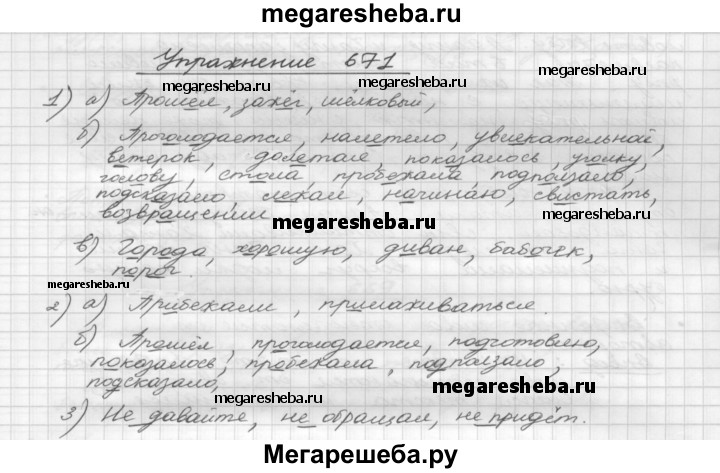 megaresheba.ru
Упражнение 671
megaresheba.ru
megaresheba.ru
1) а) Прошёл, зажёг, шёлковый,
б) Проголодается, налетело, увлекательной,
ветерок, долетале, показалось, уголку,
голову, стола пробежала подползало,
подсказало, лежал, начинаю, свистать,
возвращении
megaresheba.ru
megaresheba.ru
в) Города, хорошую, диван, бабочек,
порог.
megaresheba.ru
2) а) Прибежали, примахиваться.
б) Прошёл, проголодается, подготовлю,
показалось, пробежала, подползало,
подсказало,
megaresheba.ru
3) Не давайте, не обращал, не придёт.
Мегарешеба.ру